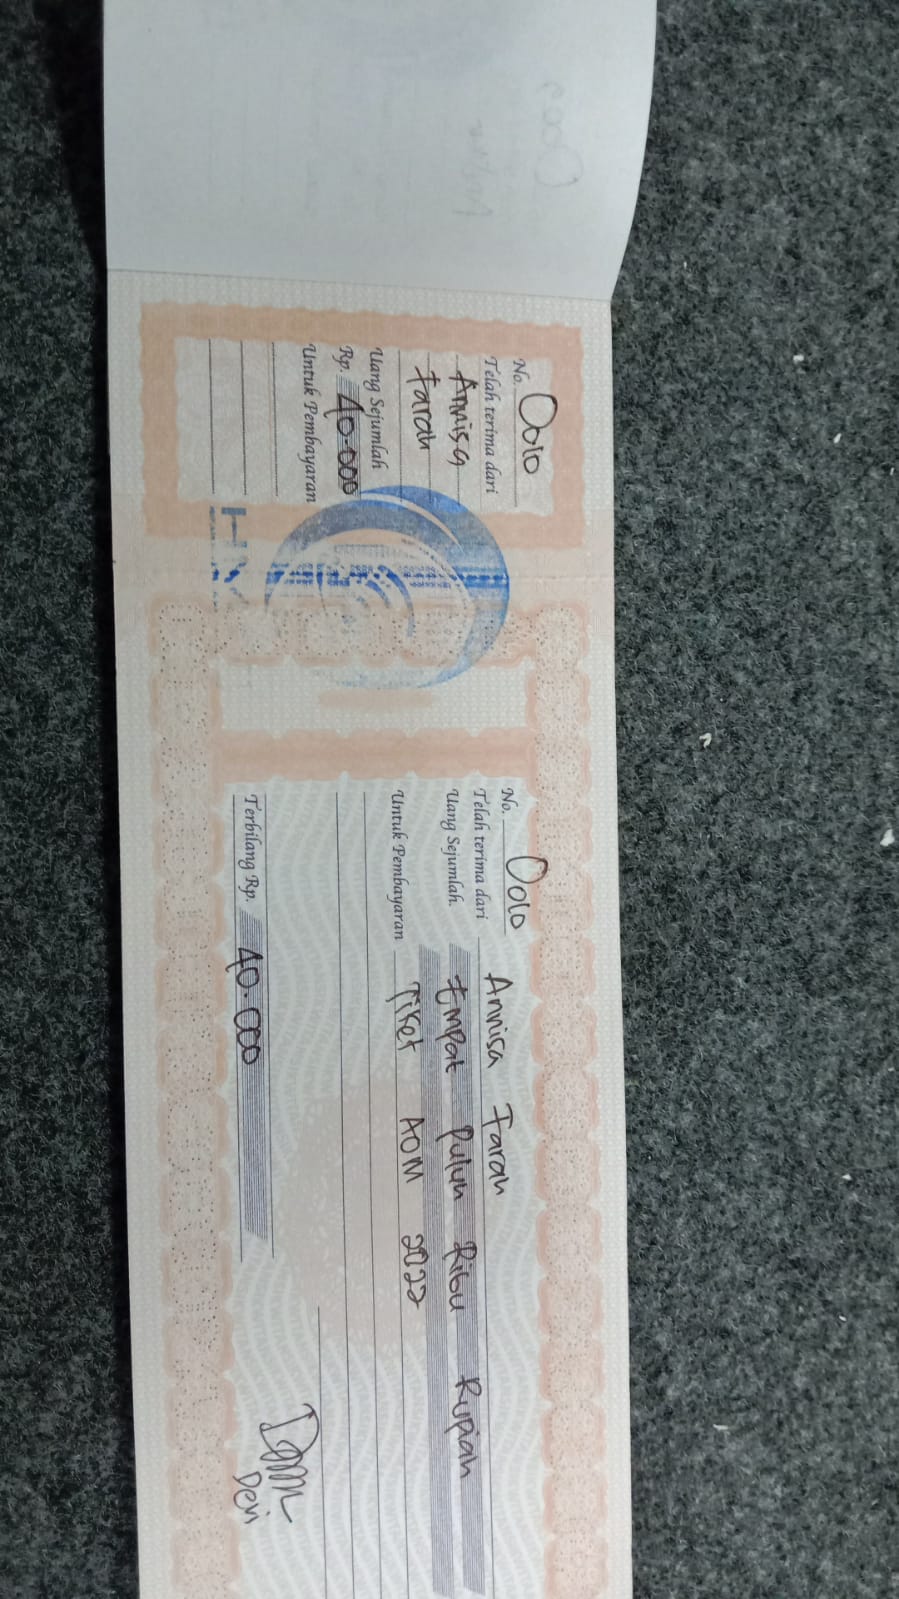 No. 0010
Telah terima dari
Annisa
Farah
Uang Sejumlah
Rp. 40.000
Untuk Pembayaran
No. 0010
Telah terima dari Annisa Farah
Uang Sejumlah Empat Puluh Ribu Rupiah
Untuk Pembayaran Tiket AOM 2022
Terbilang Rp. 40.000
Devi